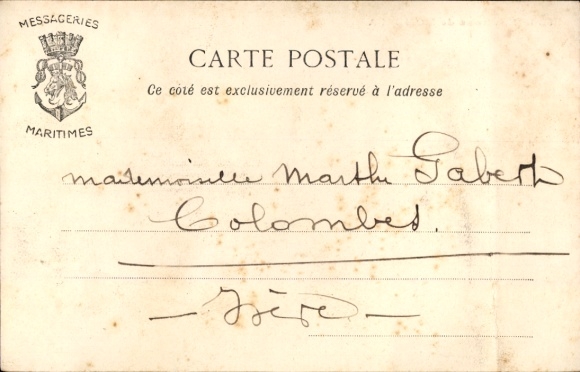 MESSAGERIES
MARITIMES
CARTE POSTALE
Ce côté est exclusivement réservé à l'adresse
Mademoiselle Marthe Gabert
Colombes.
— Isère —